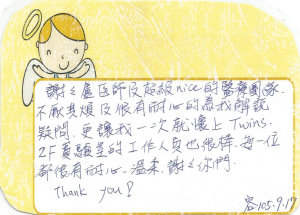 謝謝盧医師及超級nice的醫療團隊.
不厭其煩及很有耐心的為我解說
疑問.更讓我一次就懷上Twins.
2F實驗室的工作人員也很棒.每一位
都很有耐心.溫柔.謝謝你們.
Thank you!
105.9.19